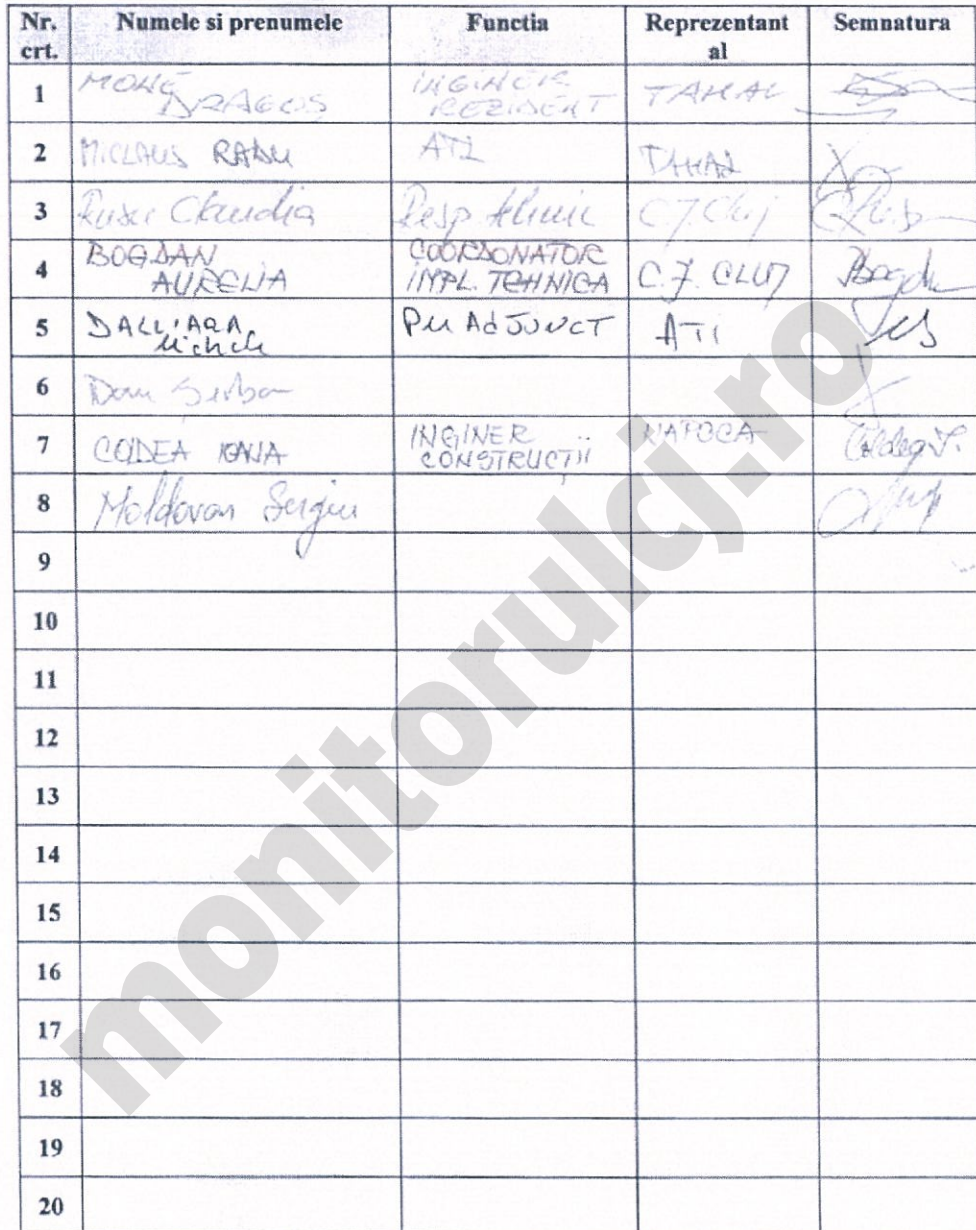 Nr. crt. Numele si prenumele Functia Reprezentant al Semnatura
1 MONE DRAGOS INGINER REZIDENT TAHAL
2 MICLAUS RADU ATI TAHAL
3 Rusu Claudia Resp tehnic C.J. Cluj
4 BOGDAN AURELIA COORDONATOR IMPL. TEHNICA C.J. CLUJ Bogdan
5 DALL'ARA Michele PM AdJUNCT ATI
6 Dan Serban
7 COLDEA IOANA INGINER CONSTRUCȚII NAPOCA Coldea I.
8 Moldovan Sergiu
9
10
11
12
13
14
15
16
17
18
19
20
monitorulcj.ro